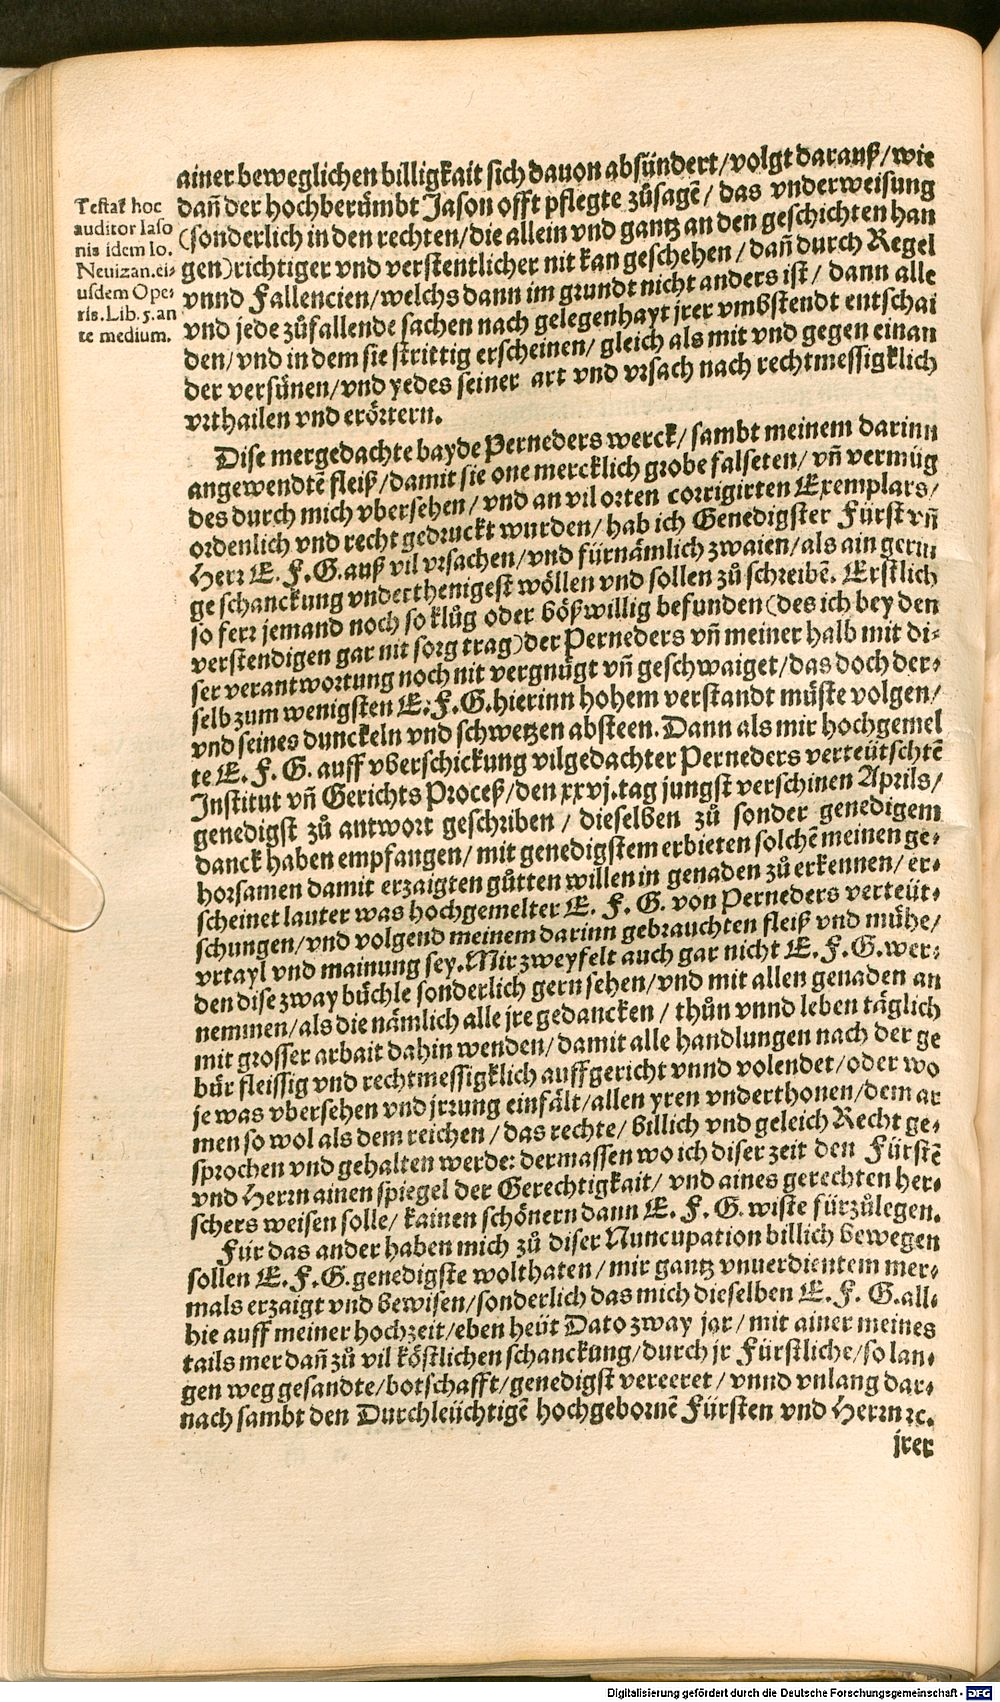 ainer beweglichen billigkait sich dauon absündert/volgt darauß/wie
Testat hoc
auditor Iaso
nis idem Io.
Neuizan.ei-
usdem Ope-
ris.Lib.5.an
te medium.
dañ der hochberůmbt Jason offt pflegte zůsagē/ das vnderweisung
(sonderlich in den rechten/die allein vnd gantz an den geschichten han
gen)richtiger vnd verstentlicher nit kan geschehen/ dañ durch Regel
vnnd Fallencien/welchs dann im grundt nicht anders ist/ dann alle
vnd jede zůfallende sachen nach gelegenhayt jrer vmbstendt entschai
den/vnd in dem sie strittig erscheinen/ gleich als mit vnd gegen einan
der versünen/vnd yedes seiner art vnd vrsach nach rechtmessigklich
vrthailen vnd erörtern.
Dise mergedachte bayde Perneders werck/ sambt meinem darinn
angewendtē fleiß/damit sie one mercklich grobe falseten/ vñ vermüg
des durch mich vbersehen/ vnd an vil orten corrigirten Exemplars/
ordenlich vnd recht gedruckt wurden/ hab ich Genedigster Fürst vñ
Herr E. F. G. auß vil vrsachen/vnd fürnämlich zwaien/als ain gerin
ge schanckung vnderthenigest wöllen vnd sollen zů schreibē. Erstlich
so ferr jemand noch so klůg oder bößwillig befunden (des ich bey den
verstendigen gar nit sorg trag)der Perneders vñ meiner halb mit di-
ser verantwortung noch nit vergnügt vñ geschwaiget/das doch der-
selb zum wenigsten E. F. G. hierinn hohem verstandt müste volgen/
vnd seines dunckeln vnd schwetzen absteen. Dann als mir hochgemel
te E. F. G. auff vberschickung vilgedachter Perneders verteütschtē
Institut vñ Gerichts Proceß/den xxvj.tag jungst verschinen Aprils/
genedigst zů antwort geschriben/ dieselben zů sonder genedigem
danck haben empfangen/ mit genedigstem erbieten solchē meinen ge-
horsamen damit erzaigten gůtten willen in genaden zů erkennen/ er-
scheinet lauter was hochgemelter E. F. G. von Perneders verteüt-
schungen/vnd volgend meinem darinn gebrauchten fleiß vnd mühe/
vrtayl vnd mainung sey. Mir zweyfelt auch gar nicht E. F. G. wer-
den dise zway büchle sonderlich gern sehen/vnd mit allen genaden an
nemmen/als die nämlich alle jre gedancken/ thůn vnnd leben täglich
mit grosser arbait dahin wenden/damit alle handlungen nach der ge
bür fleissig vnd rechtmessigklich auffgericht vnnd volendet/oder wo
je was vbersehen vnd jrrung einfält/allen yren vnderthonen/dem ar
men so wol als dem reichen/ das rechte/ billich vnd geleich Recht ge-
sprochen vnd gehalten werde: dermassen wo ich diser zeit den Fürstē
vnd Herrn ainen spiegel der Gerechtigkait/ vnd aines gerechten her-
schers weisen solle/ kainen schönern dann E. F. G. wiste fürzůlegen.
Für das ander haben mich zů diser Nuncupation billich bewegen
sollen E. F. G. genedigste wolthaten/ mir gantz vnuerdientem mer-
mals erzaigt vnd bewisen/sonderlich das mich dieselben E. F. G. all-
hie auff meiner hochzeit/eben heüt Dato zway jar/ mit ainer meines
tails mer dañ zů vil köstlichen schanckung/durch jr Fürstliche/so lan-
gen weg gesandte/botschafft/genedigst vereeret/ vnnd vnlang dar-
nach sambt den Durchleüchtigē hochgebornē Fürsten vnd Herrn ꝛc.
jrer
Digitalisierung gefördert durch die Deutsche Forschungsgemeinschaft - DFG